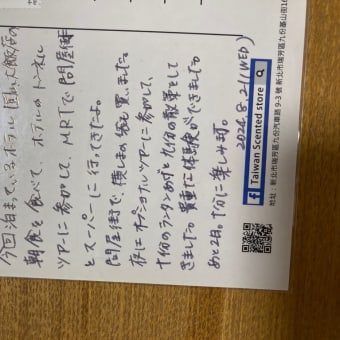 今回泊まっているホテル 圓山大飯店の
朝食を食べて、ホテルのトンネル
ツアーに参加して、MRTで問屋街
とスーパーに行ってきたよ。
問屋街で、横しまの袋も買いました。
夜にオプショナルツアーに参加して、
十份のランタンあげと九份の散策をして
きました。貴重な体験ができました。
あと2日。十分に楽しみ
2024.8.21(WED)
Taiwan Scented store
地址：新北市瑞芳區九份汽車路9-3號 新北市瑞芳區九份基山街